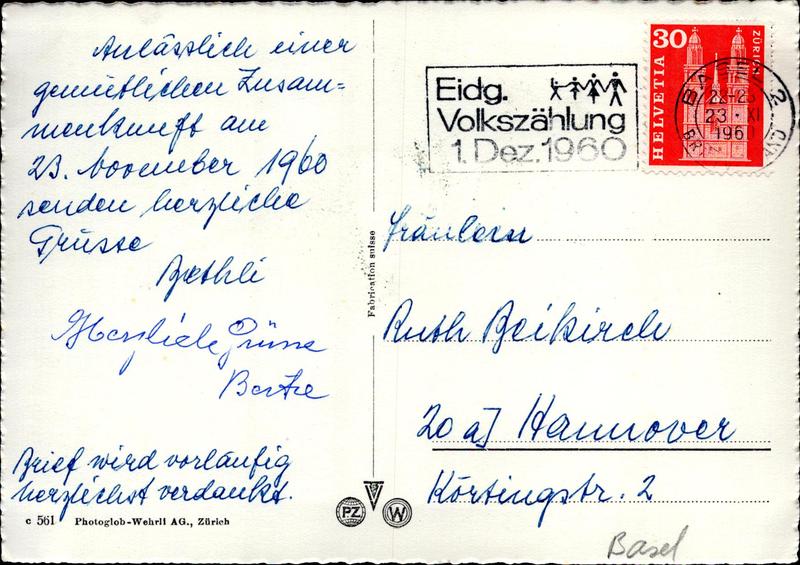 Anlässlich einer
gemütlichen Zusam=
menkunft am
23. November 1960
senden herzliche
Grüsse
Bethli
Herzliche Grüsse
Brief wird vorläufig
herzlichst verdankt.
c 561 Photoglob-Wehrli AG., Zürich
Fabrication suisse
PZ
W
Eidg.
Volkszählung
1. Dez. 1960
30
HELVETIA
ZÜRICH
BASEL 2
22-23
23 · XI
1960
Fräulein
Ruth Beikirch
20a] Hannover
Körtingstr. 2
Basel